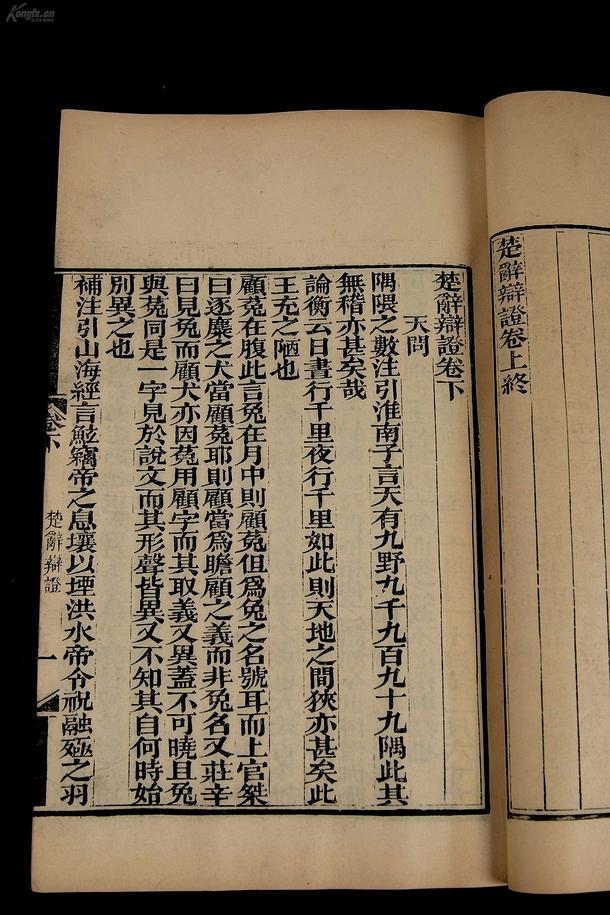 Kongfz.cn
楚辭辯證卷上終
楚辭辯證卷下
天問
隅隈之數注引淮南子言天有九野九千九百九十九隅此其
無稽亦甚矣哉
論衡云日晝行千里夜行千里如此則天地之間狹亦甚矣此
王充之陋也
顧菟在腹此言兔在月中則顧菟但爲兔之名號耳而上官桀
曰逐麋之犬當顧菟耶則顧當爲瞻顧之義而非兔名又莊辛
曰見兔而顧犬亦因菟用顧字而其取義又異蓋不可曉且兔
與菟同是一字見於說文而其形聲皆異又不知其自何時始
別異之也
補注引山海經言鯀竊帝之息壤以堙洪水帝令祝融殛之羽
卷下
楚辭辯證
一